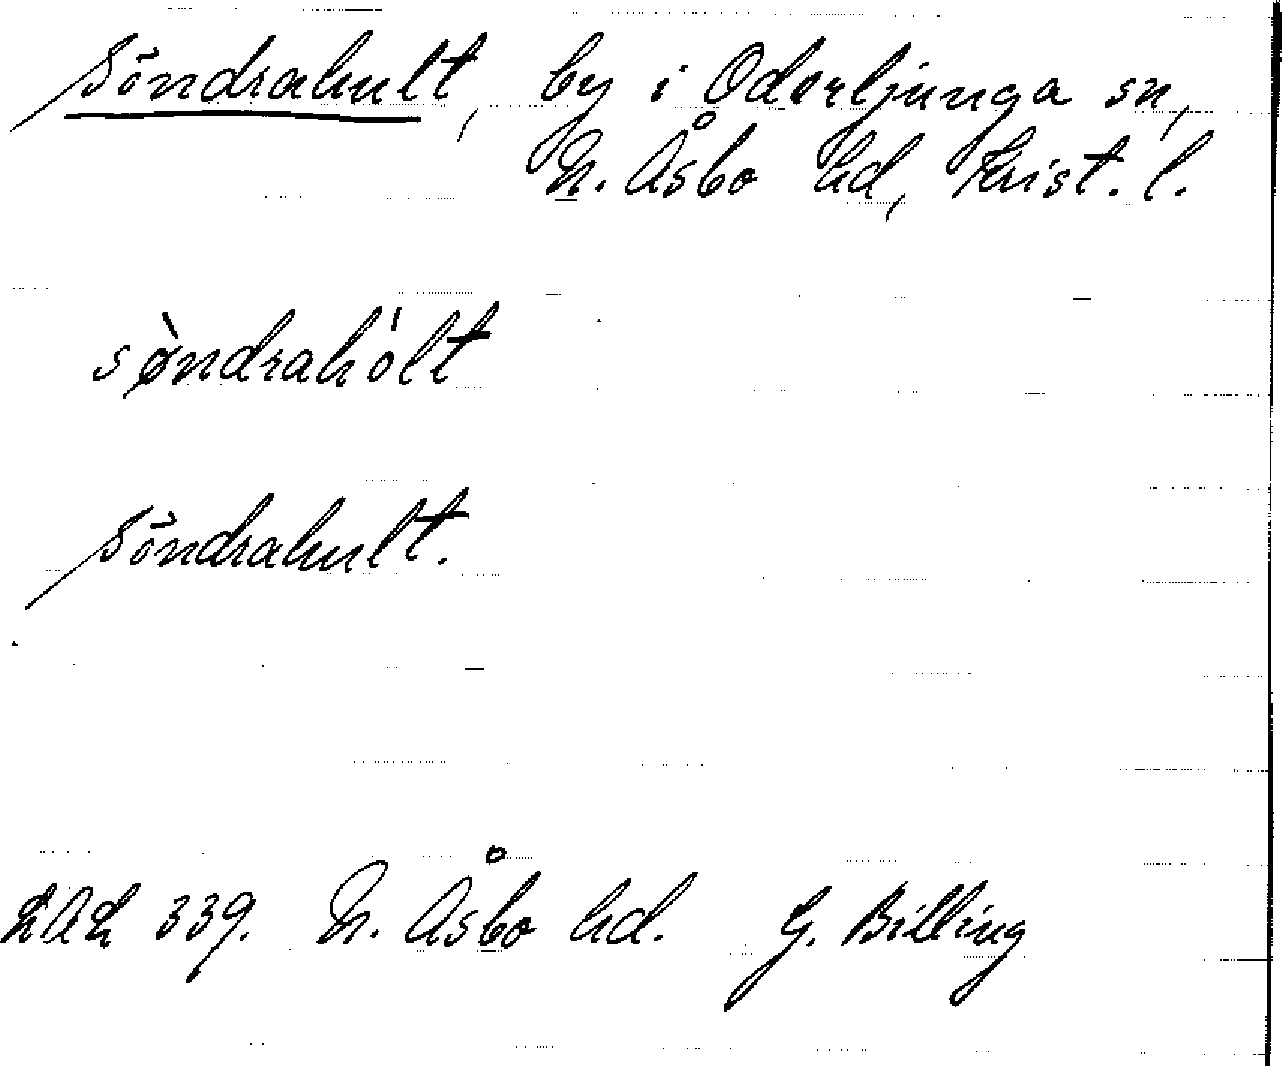 Söndrahult, by i Oderljunga sn,
N. Åsbo hd, Krist. l.
sø̀ndrahólt
Söndrahult.
LAL 339. N. Åsbo hd. G. Billing